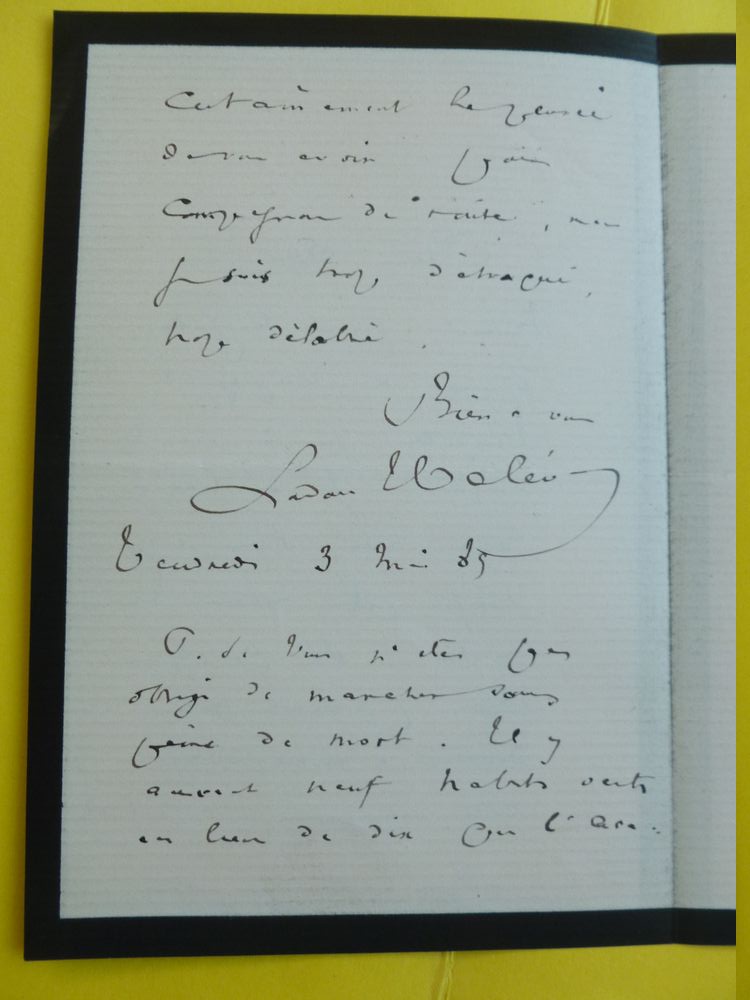 Certainement la pensée
de vous avoir pour
compagnon de route, mais
je suis trop détraqué,
trop délabré.
Bien à vous
Ludovic Halévy
Vendredi 3 Mai
Vous n'êtes pas
obligé de marcher sous
peine de mort. Il y
aurait neuf habits verts
au lieu de dix que l'Aca-